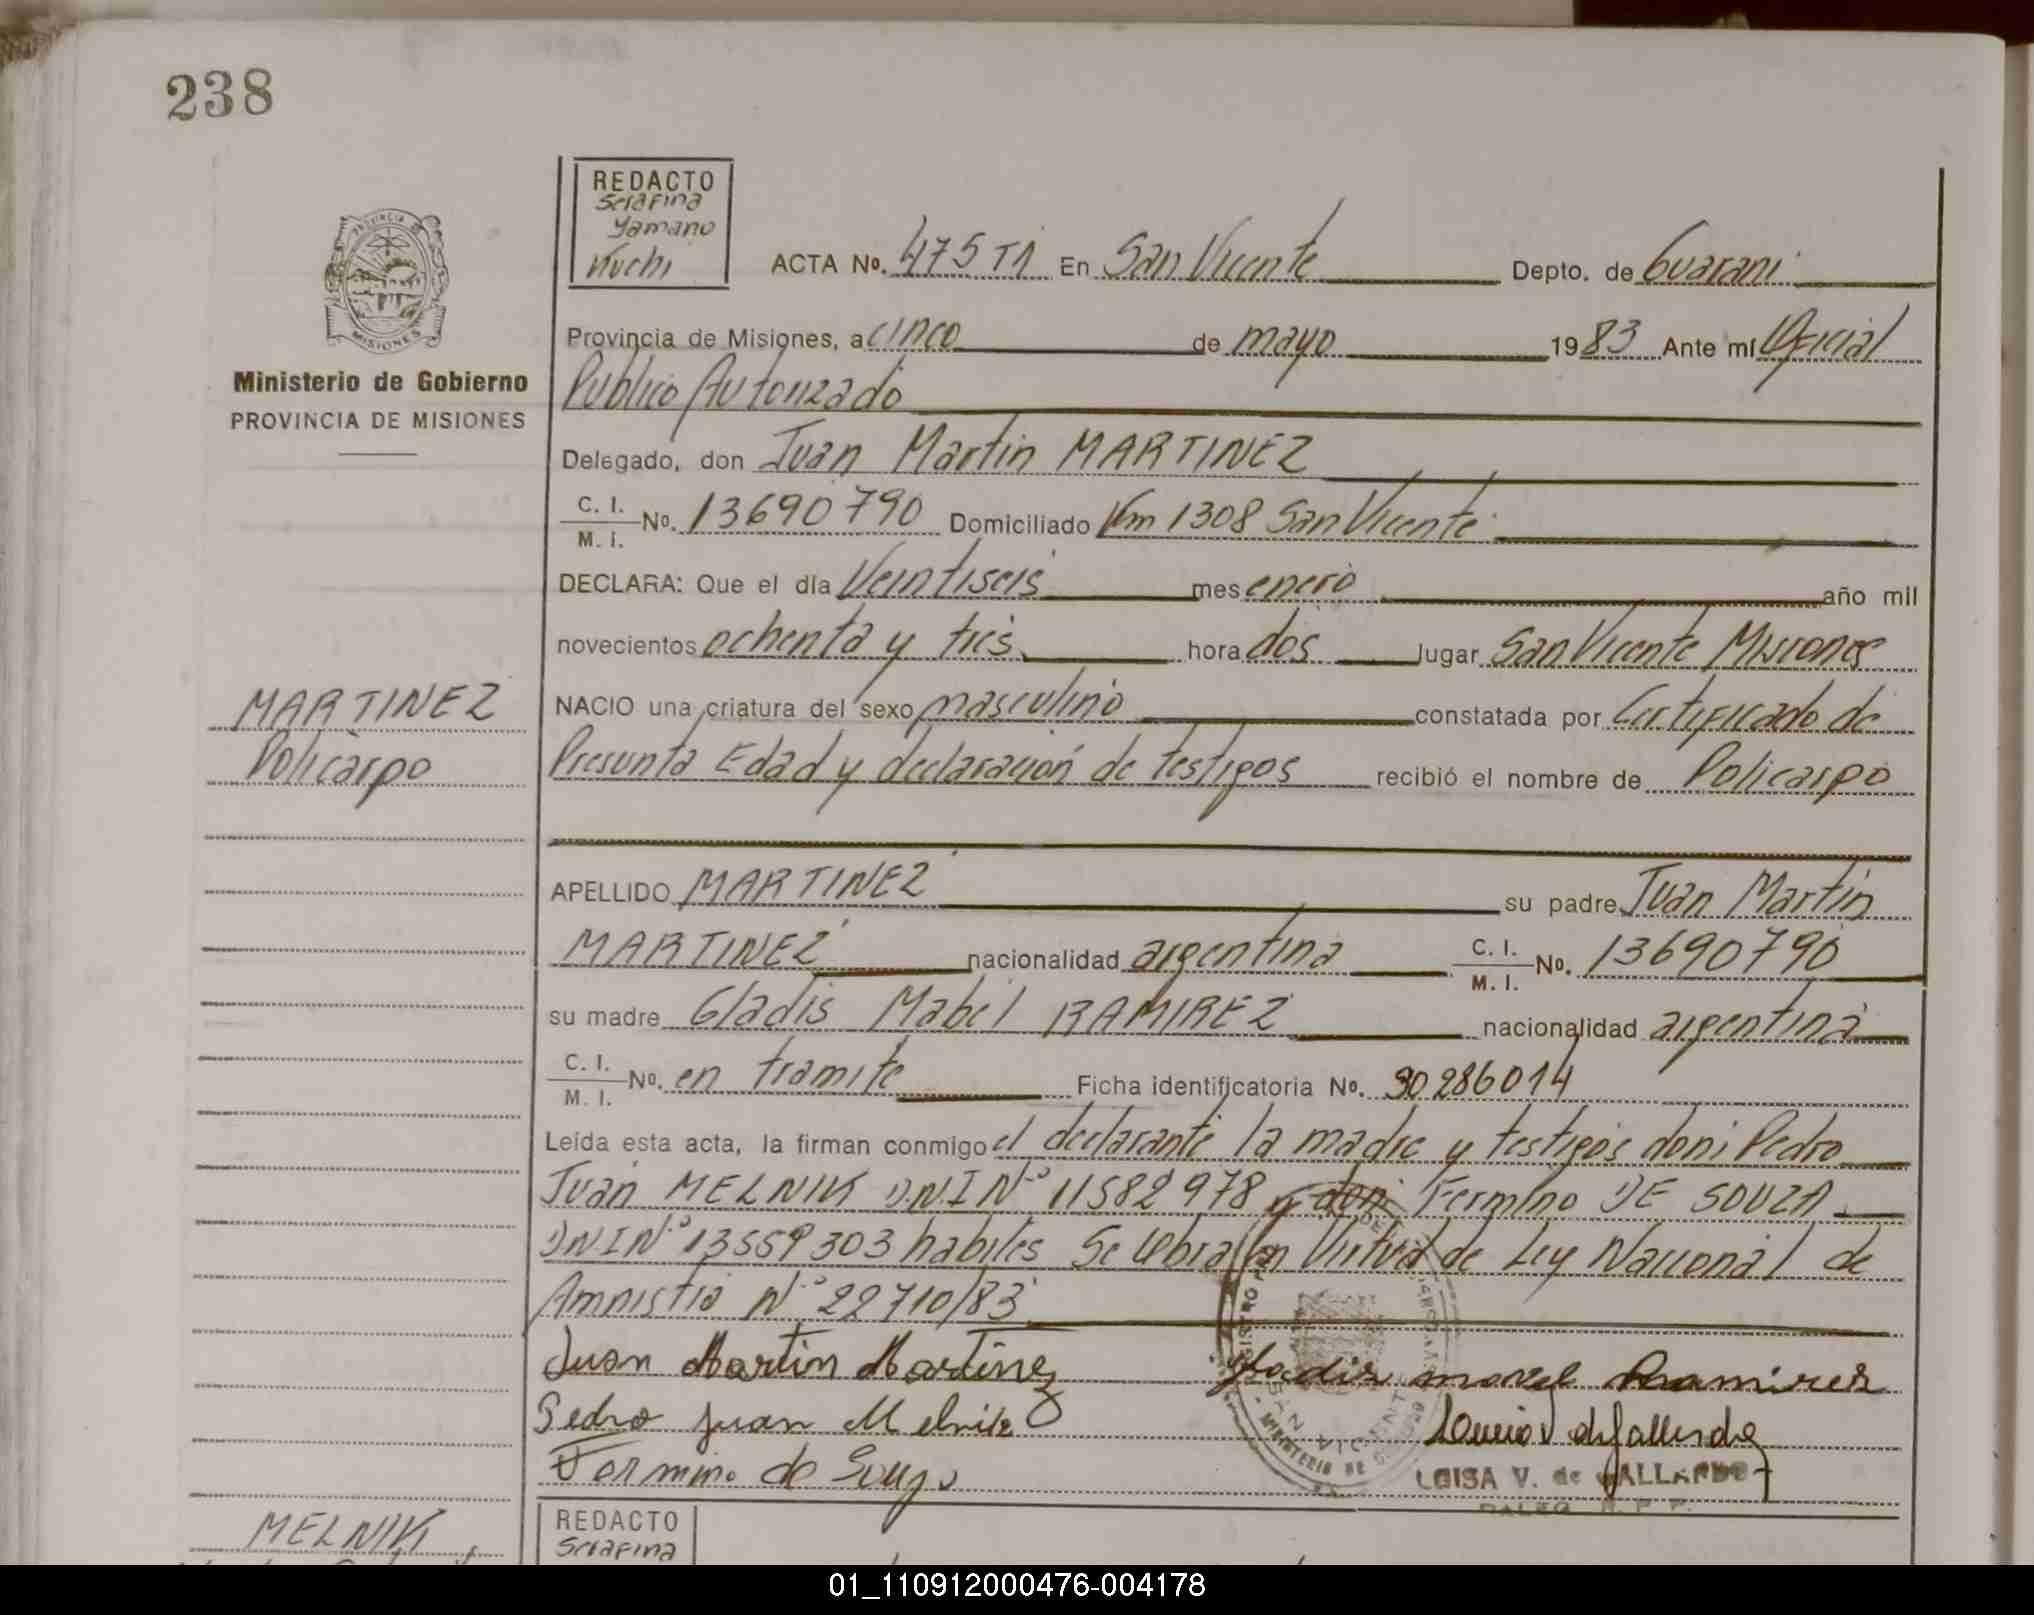 238
REDACTO
Serafina
Yamano
Kuchi
ACTA Nº. 475 T1 En San Vicente Depto. de Guarani
PROVINCIA DE
MISIONES
Provincia de Misiones, a cinco de mayo 1983 Ante mí Oficial
Ministerio de Gobierno
PROVINCIA DE MISIONES
Publico Autorizado
Delegado, don Juan Martin MARTINEZ
C. I.
M. I. Nº. 13690790 Domiciliado Km 1308 San Vicente
DECLARA: Que el día Veintiseis mes enero año mil
novecientos ochenta y tres hora dos lugar San Vicente Misiones
MARTINEZ
Policarpo
NACIO una criatura del sexo masculino constatada por Certificado de
Presunta Edad y declaración de testigos recibió el nombre de Policarpo
APELLIDO MARTINEZ su padre Juan Martin
MARTINEZ nacionalidad argentina C. I.
M. I. Nº. 13690790
su madre Gladis Mabel RAMIREZ nacionalidad argentina
C. I.
M. I. Nº. en tramite Ficha identificatoria Nº. 30286014
Leída esta acta, la firman conmigo el declarante la madre y testigos don: Pedro
Juan MELNIK D.N.I Nº 11582978 y don: Fermino DE SOUZA
DNI Nº 13559303 habiles Se labra en Virtud de Ley Nacional de
Amnistia Nº 22710/83
Juan Martin Martinez
Pedro Juan Melnik
Fermino de Souza
Ramirez
SAN VICENTE
MINISTERIO DE
LUISA V. de GALLARDO
MELNIK
REDACTO
Serafina
01_110912000476-004178